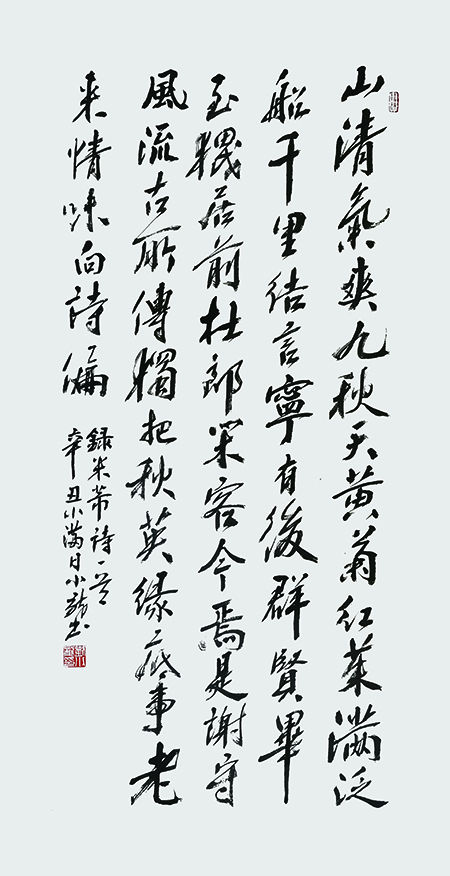 山清氣爽九秋天黄菊紅茱滿泛
船千里結言寧有後群賢畢
至猥居前杜郎閑客今焉是謝守
風流古所傳獨把秋英緣底事老
来情味向詩偏
録米芾詩一首
辛丑小滿日小龍書